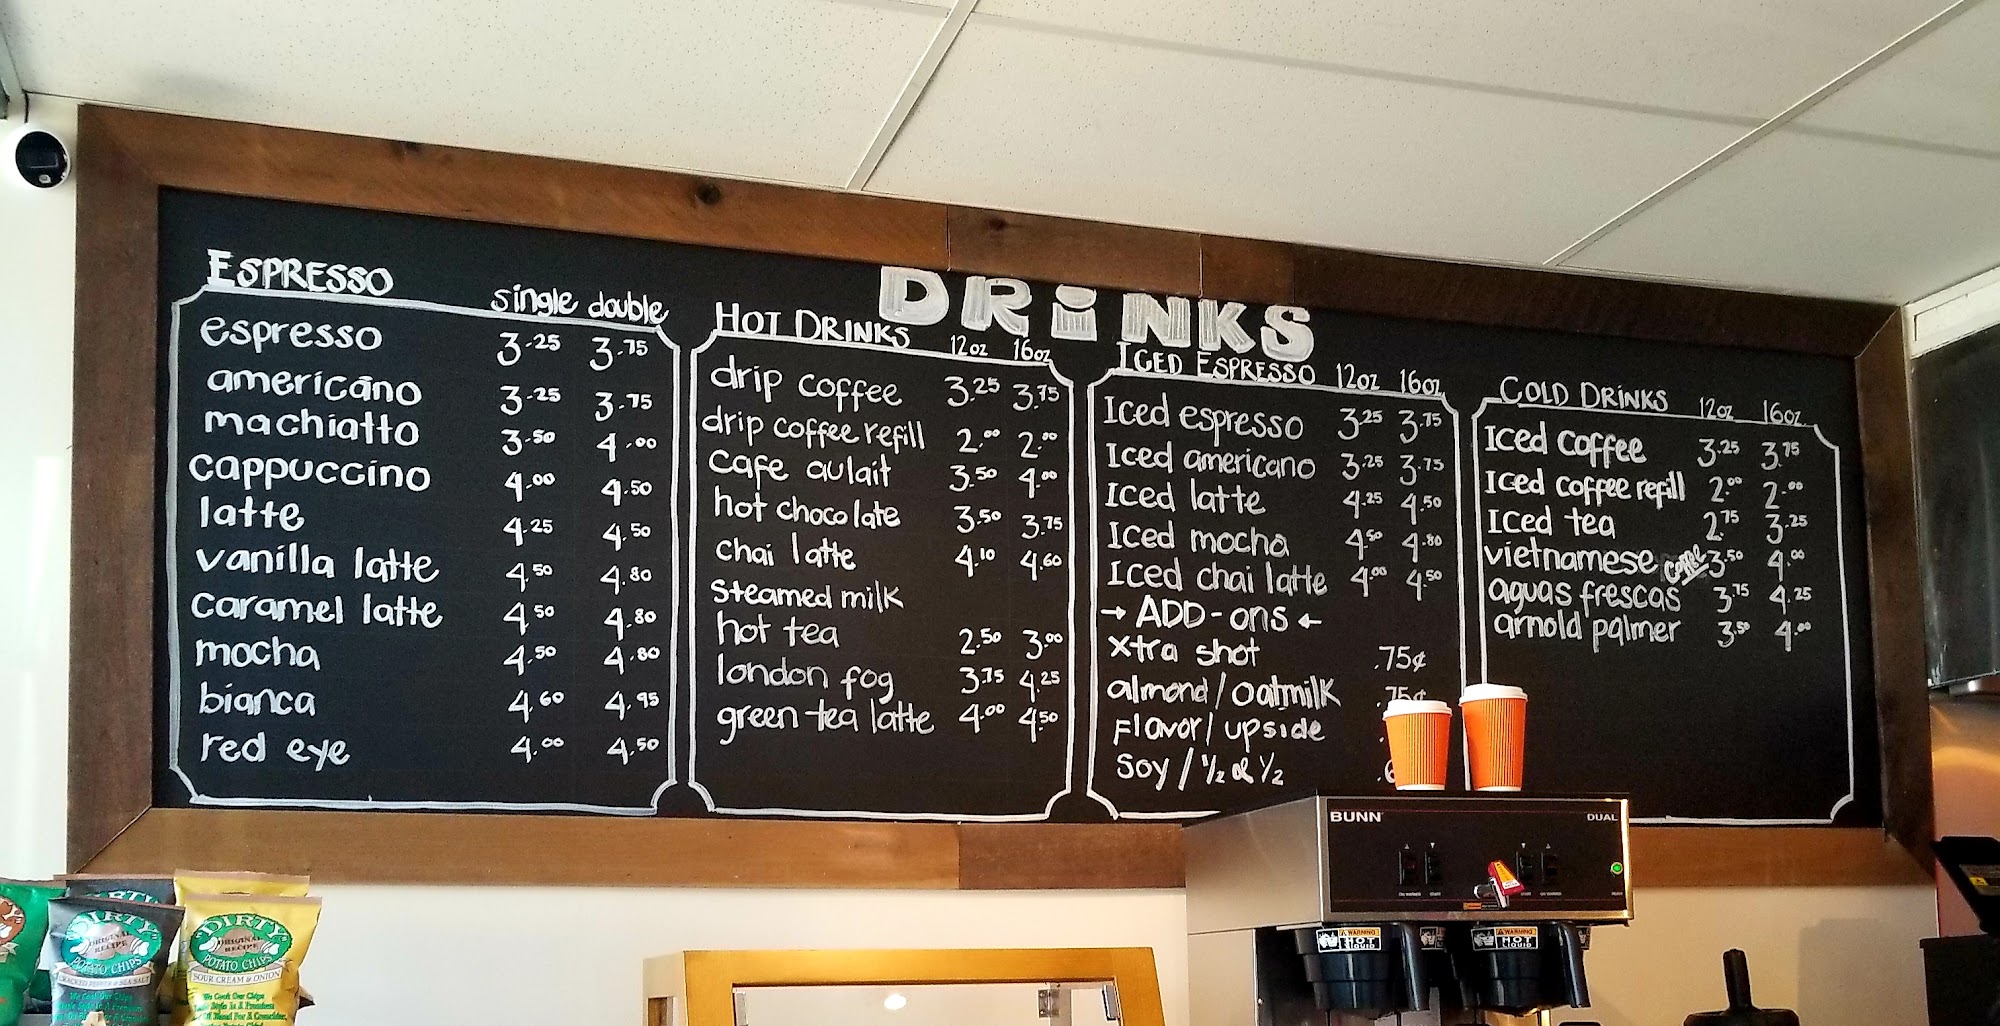 DRiNKS
ESPRESSO
single double
espresso 3.25 3.75
americano 3.25 3.75
machiatto 3.50 4.00
cappuccino 4.00 4.50
latte 4.25 4.50
vanilla latte 4.50 4.80
caramel latte 4.50 4.80
mocha 4.50 4.80
bianca 4.60 4.95
red eye 4.00 4.50
HOT DRINKS 12oz 16oz
drip coffee 3.25 3.75
drip coffee refill 2.00 2.00
cafe aulait 3.50 4.00
hot chocolate 3.50 3.75
chai latte 4.10 4.60
steamed milk
hot tea 2.50 3.00
london fog 3.75 4.25
green tea latte 4.00 4.50
ICED ESPRESSO 12oz 16oz
Iced espresso 3.25 3.75
Iced americano 3.25 3.75
Iced latte 4.25 4.50
Iced mocha 4.50 4.80
Iced chai latte 4.00 4.50
→ ADD-ons ←
xtra shot .75¢
almond/oatmilk .75¢
Flavor/upside
Soy / 1/2 & 1/2
COLD DRINKS 12oz 16oz
Iced coffee 3.25 3.75
Iced coffee refill 2.00 2.00
Iced tea 2.75 3.25
vietnamese coffee 3.50 4.00
aguas frescas 3.75 4.25
arnold palmer 3.50 4.00
BUNN DUAL
WARNING
HOT
LIQUID
WARNING
HOT
LIQUID
"DIRTY"
ORIGINAL
RECIPE
POTATO CHIPS
CRACKED PEPPER & SEA SALT
"DIRTY"
ORIGINAL
RECIPE
POTATO CHIPS
SOUR CREAM & ONION